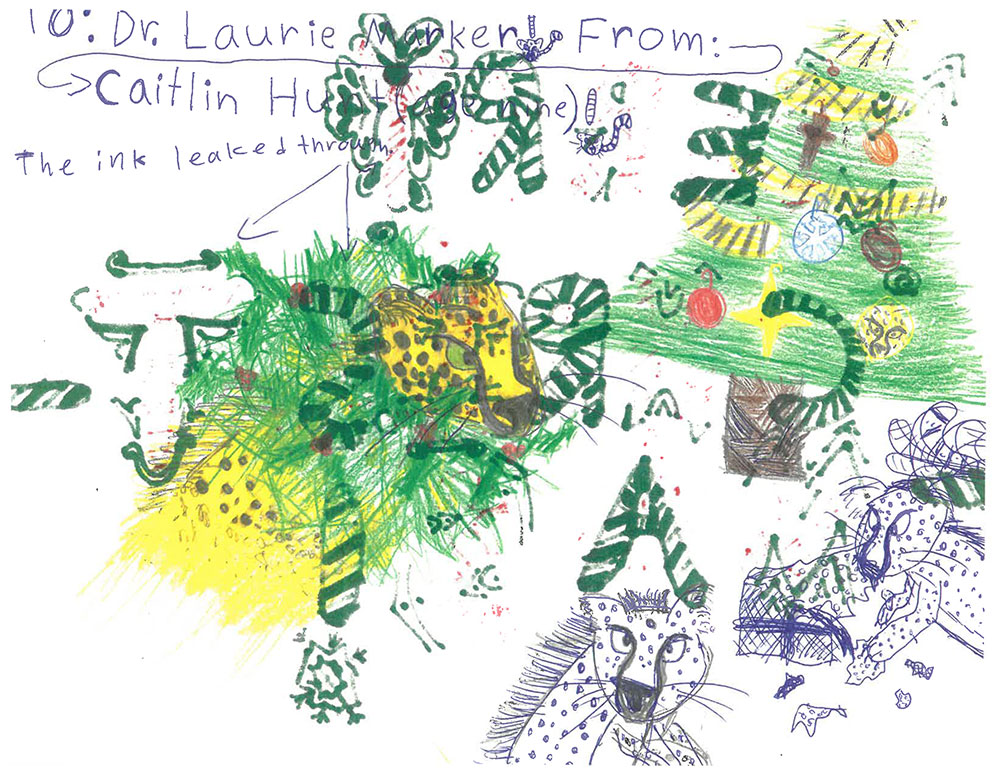 To: Dr. Laurie Marker! From:
Caitlin Hunt (age nine)!
The ink leaked through